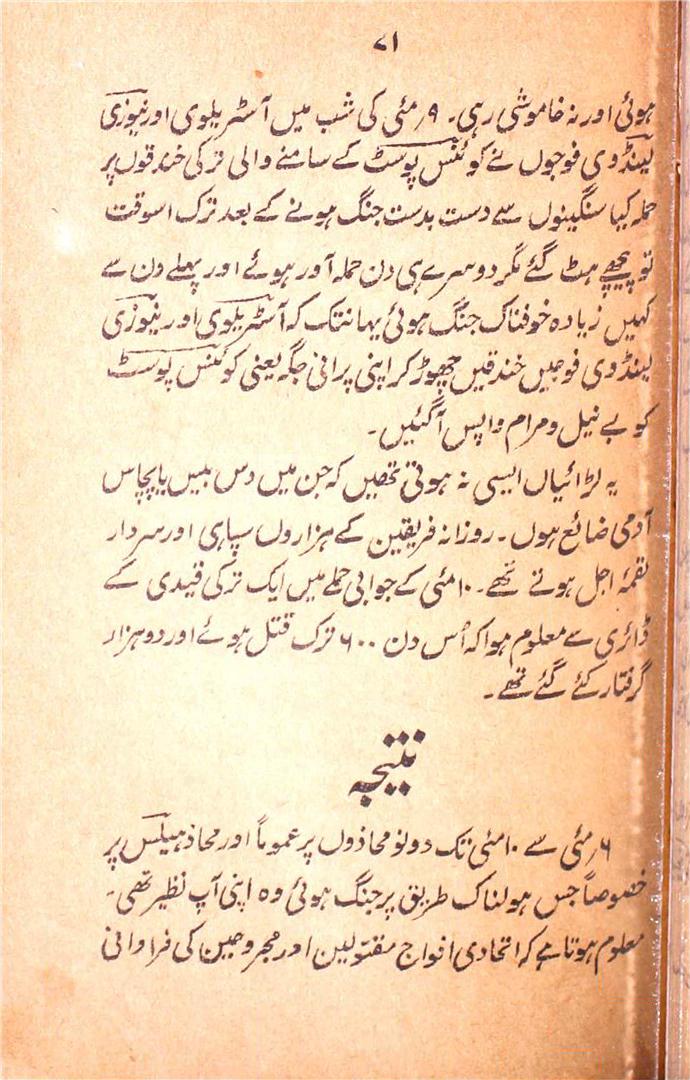 ۷۱
ہوئی اور نہ خاموشی رہی۔ ۹؍مئی کی شب میں آسٹریلوی اور نیوزی
لینڈوی فوجوں نے کوئنس پوسٹ کے سامنے والی ترکی خندقوں پر
حملہ کیا سنگینوں سے دست بدست جنگ ہونے کے بعد ترک اسوقت
تو پیچھے ہٹ گئے مگر دوسرے ہی دن حملہ آور ہوئے اور پہلے دن سے
کہیں زیادہ خوفناک جنگ ہوئی یہانتک کہ آسٹریلوی اور نیوزی
لینڈوی فوجیں خندقیں چھوڑ کر اپنی پرانی جگہ یعنی کوئنس پوسٹ
کو بے نیل و مرام واپس آگئیں۔
یہ لڑائیاں ایسی نہ ہوتی تھیں کہ جن میں دس بیس یا پچاس
آدمی ضائع ہوں۔ روزانہ فریقین کے ہزاروں سپاہی اور سردار
لقمۂ اجل ہوتے تھے۔ ۱۰مئی کے جوابی حملے میں ایک ترکی قیدی کے
ڈائری سے معلوم ہوا کہ اُس دن ۶۰۰ ترک قتل ہوئے اور دو ہزار
گرفتار کئے گئے تھے۔
نتیجہ
۶؍مئی سے ۱۰مئی تک دونو محاذوں پر عموماً اور محاذ ہیلس پر
خصوصاً جس ہولناک طریق پر جنگ ہوئی وہ اپنی آپ نظیر تھی۔
معلوم ہوتا ہے کہ اتحادی افواج مقتولین اور مجروحین کی فراوانی